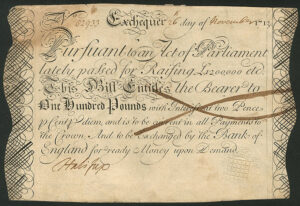 Exchequer 26 day of November 1712
Pursuant to an Act of Parliament
lately passed for Raising £1200000 etc
This Bill Entitles the Bearer to
One Hundred Pounds with Interest at two Pence
p Cent p diem, and is to be current in all Payments to
the Crown. And to be Exchanged by the Bank of
England for ready Money upon Demand.
Halifax